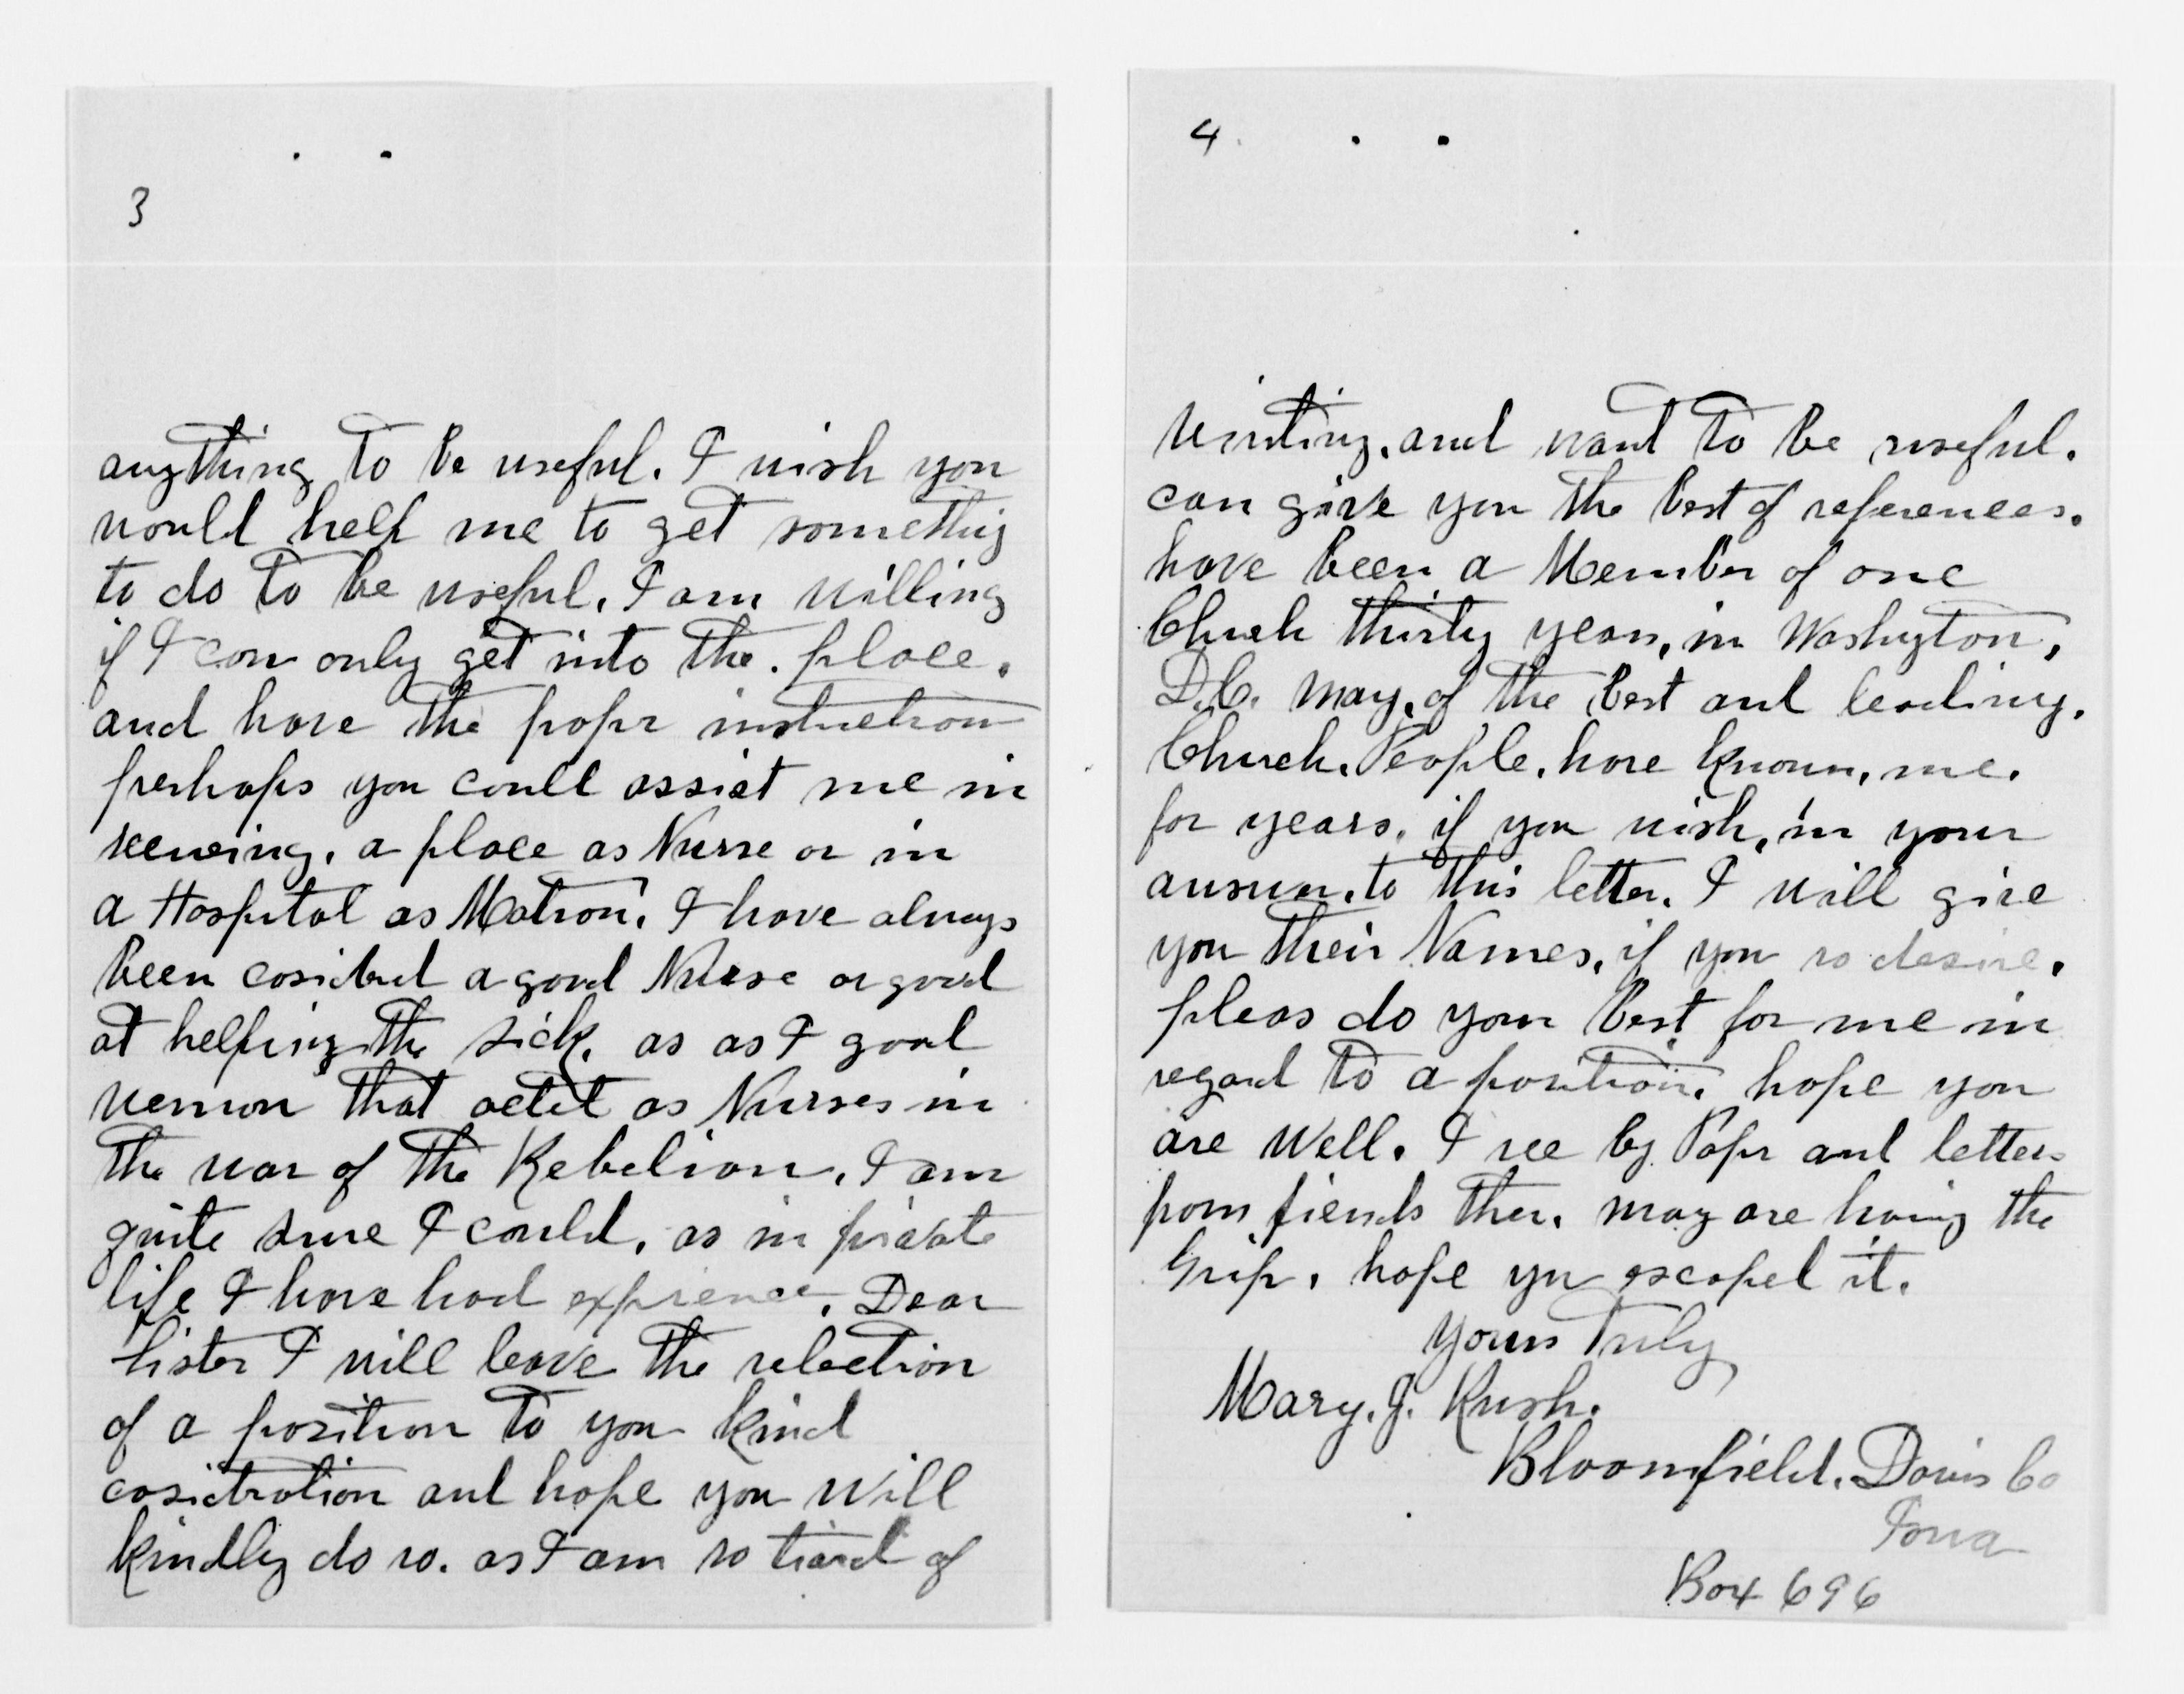 3
anything to be useful. I wish you
would help me to get somethig
to do to be useful. I am willing
if I can only get into the. place.
and have the popr instuction
perhaps you could assist me in
seeuring. a place as Nurse or in
a Hospital as Matron. I have always
been cosidred a good Nurse or good
at helping the sick. as as I good
wemon that actet as Nurses in
the war of the Rebelion. I am
quite sure I could. as in private
life I have had exprience. Dear
Sister I will leave the selection
of a position to you kind
cosidration and hope you will
kindly do so. as I am so tiard of
4.
and want to be useful.
can give you the best of references.
have been a Member of one
Chuch thirty years, in Washigton,
D.C. may, of the best and leading.
Chuch. People. have known, me.
for years. if you wish, in your
answer. to this letter. I will give
you their Names, if you so desire.
pleas do your best for me in
regard to a position. hope you
are well. I see by Papr and letters
from fiends ther. may are having the
Grip. hope yu escaped it.
yours Truly
Mary. J. Rush.
Bloomfield. Davis Co
Iowa
Box 696